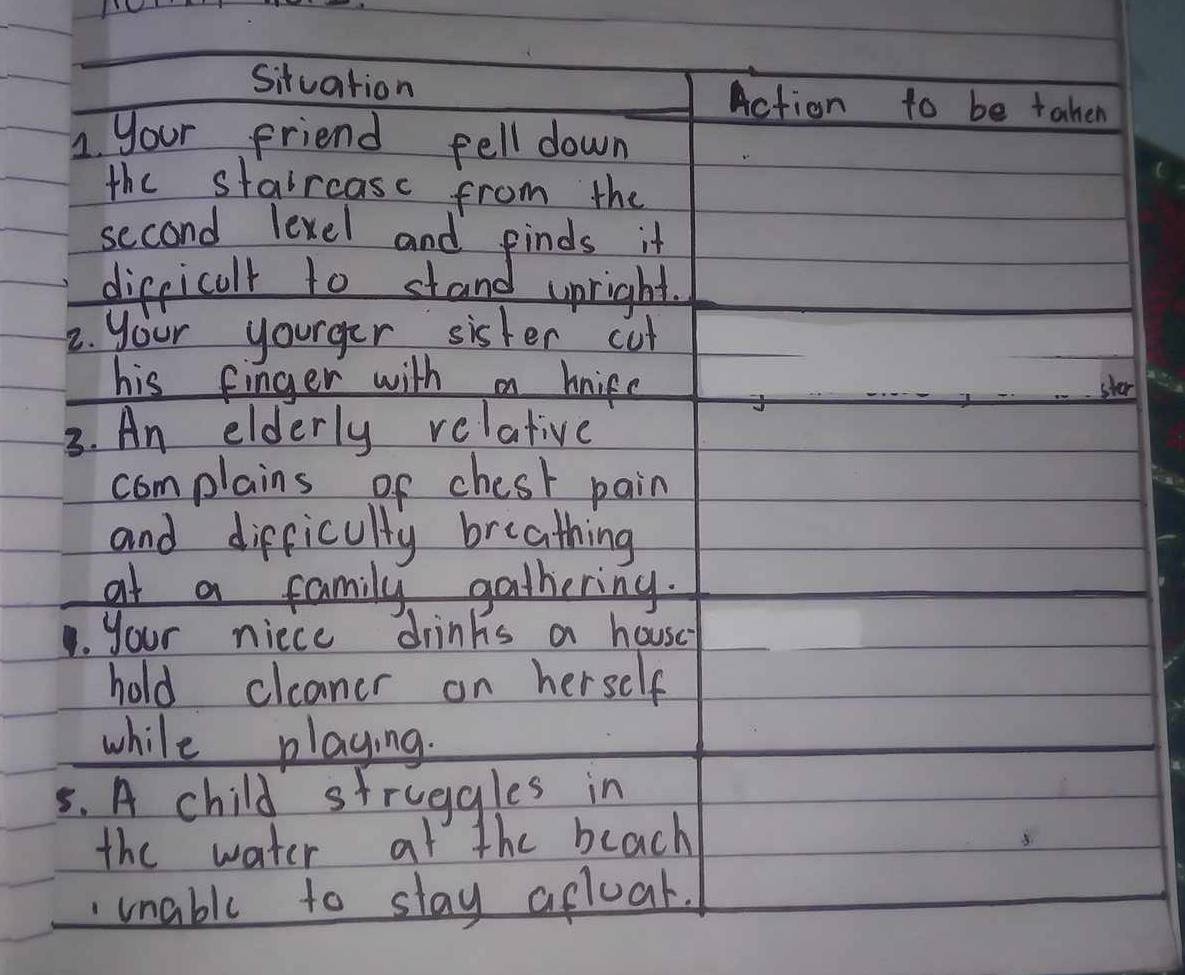 Situation
Action to be taken
1. Your friend fell down
the staircase from the
second level and finds it
difficult to stand upright.
2. Your yourger sister cut
his finger with a knife
ster
3. An elderly relative
complains of chest pain
and difficulty breathing
at a family gathering.
4. Your niece drinks a house-
hold cleaner on herself
while playing.
5. A child struggles in
the water at the beach
unable to stay afloat.